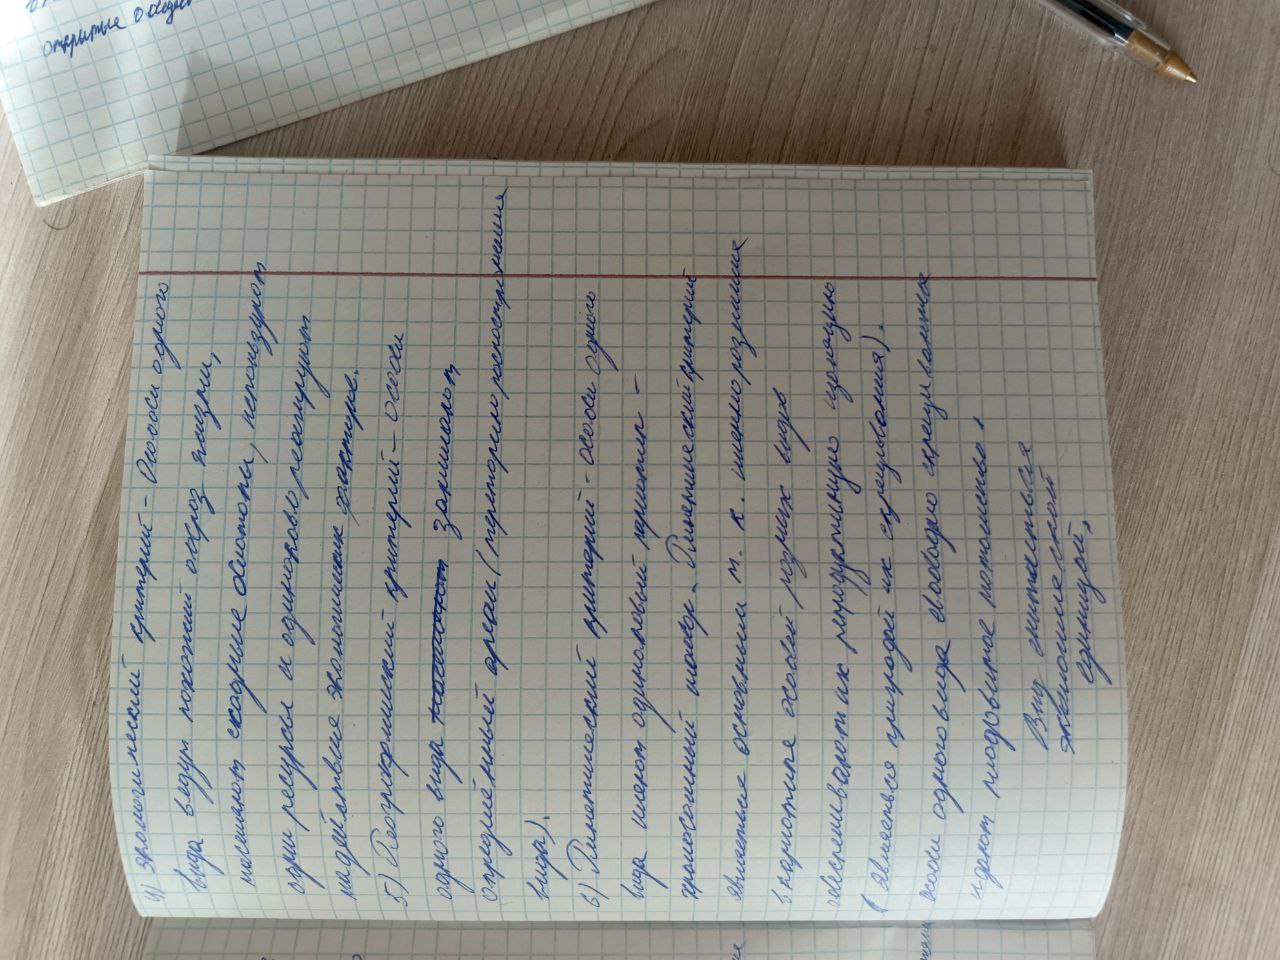 открытые
4) Экологический критерий - Особи одного
вида ведут похожий образ жизни,
населяют сходные биотопы, используют
одни ресурсы и одинаково реагируют
на действие экологических факторов.
5) Географический критерий - особи
одного вида занимают
определённый ареал (территорию распространения
вида).
6) Генетический критерий - особи одного
вида имеют одинаковый кариотип -
хромосомный набор. Генетический критерий
является основным т. к. именно различия
в кариотипе особей разных видов
обеспечивают их репродуктивную изоляцию
(является преградой их скрещивания).
особи одного вида свободно скрещиваются
и дают плодовитое потомство.
Вид считается
единицей,